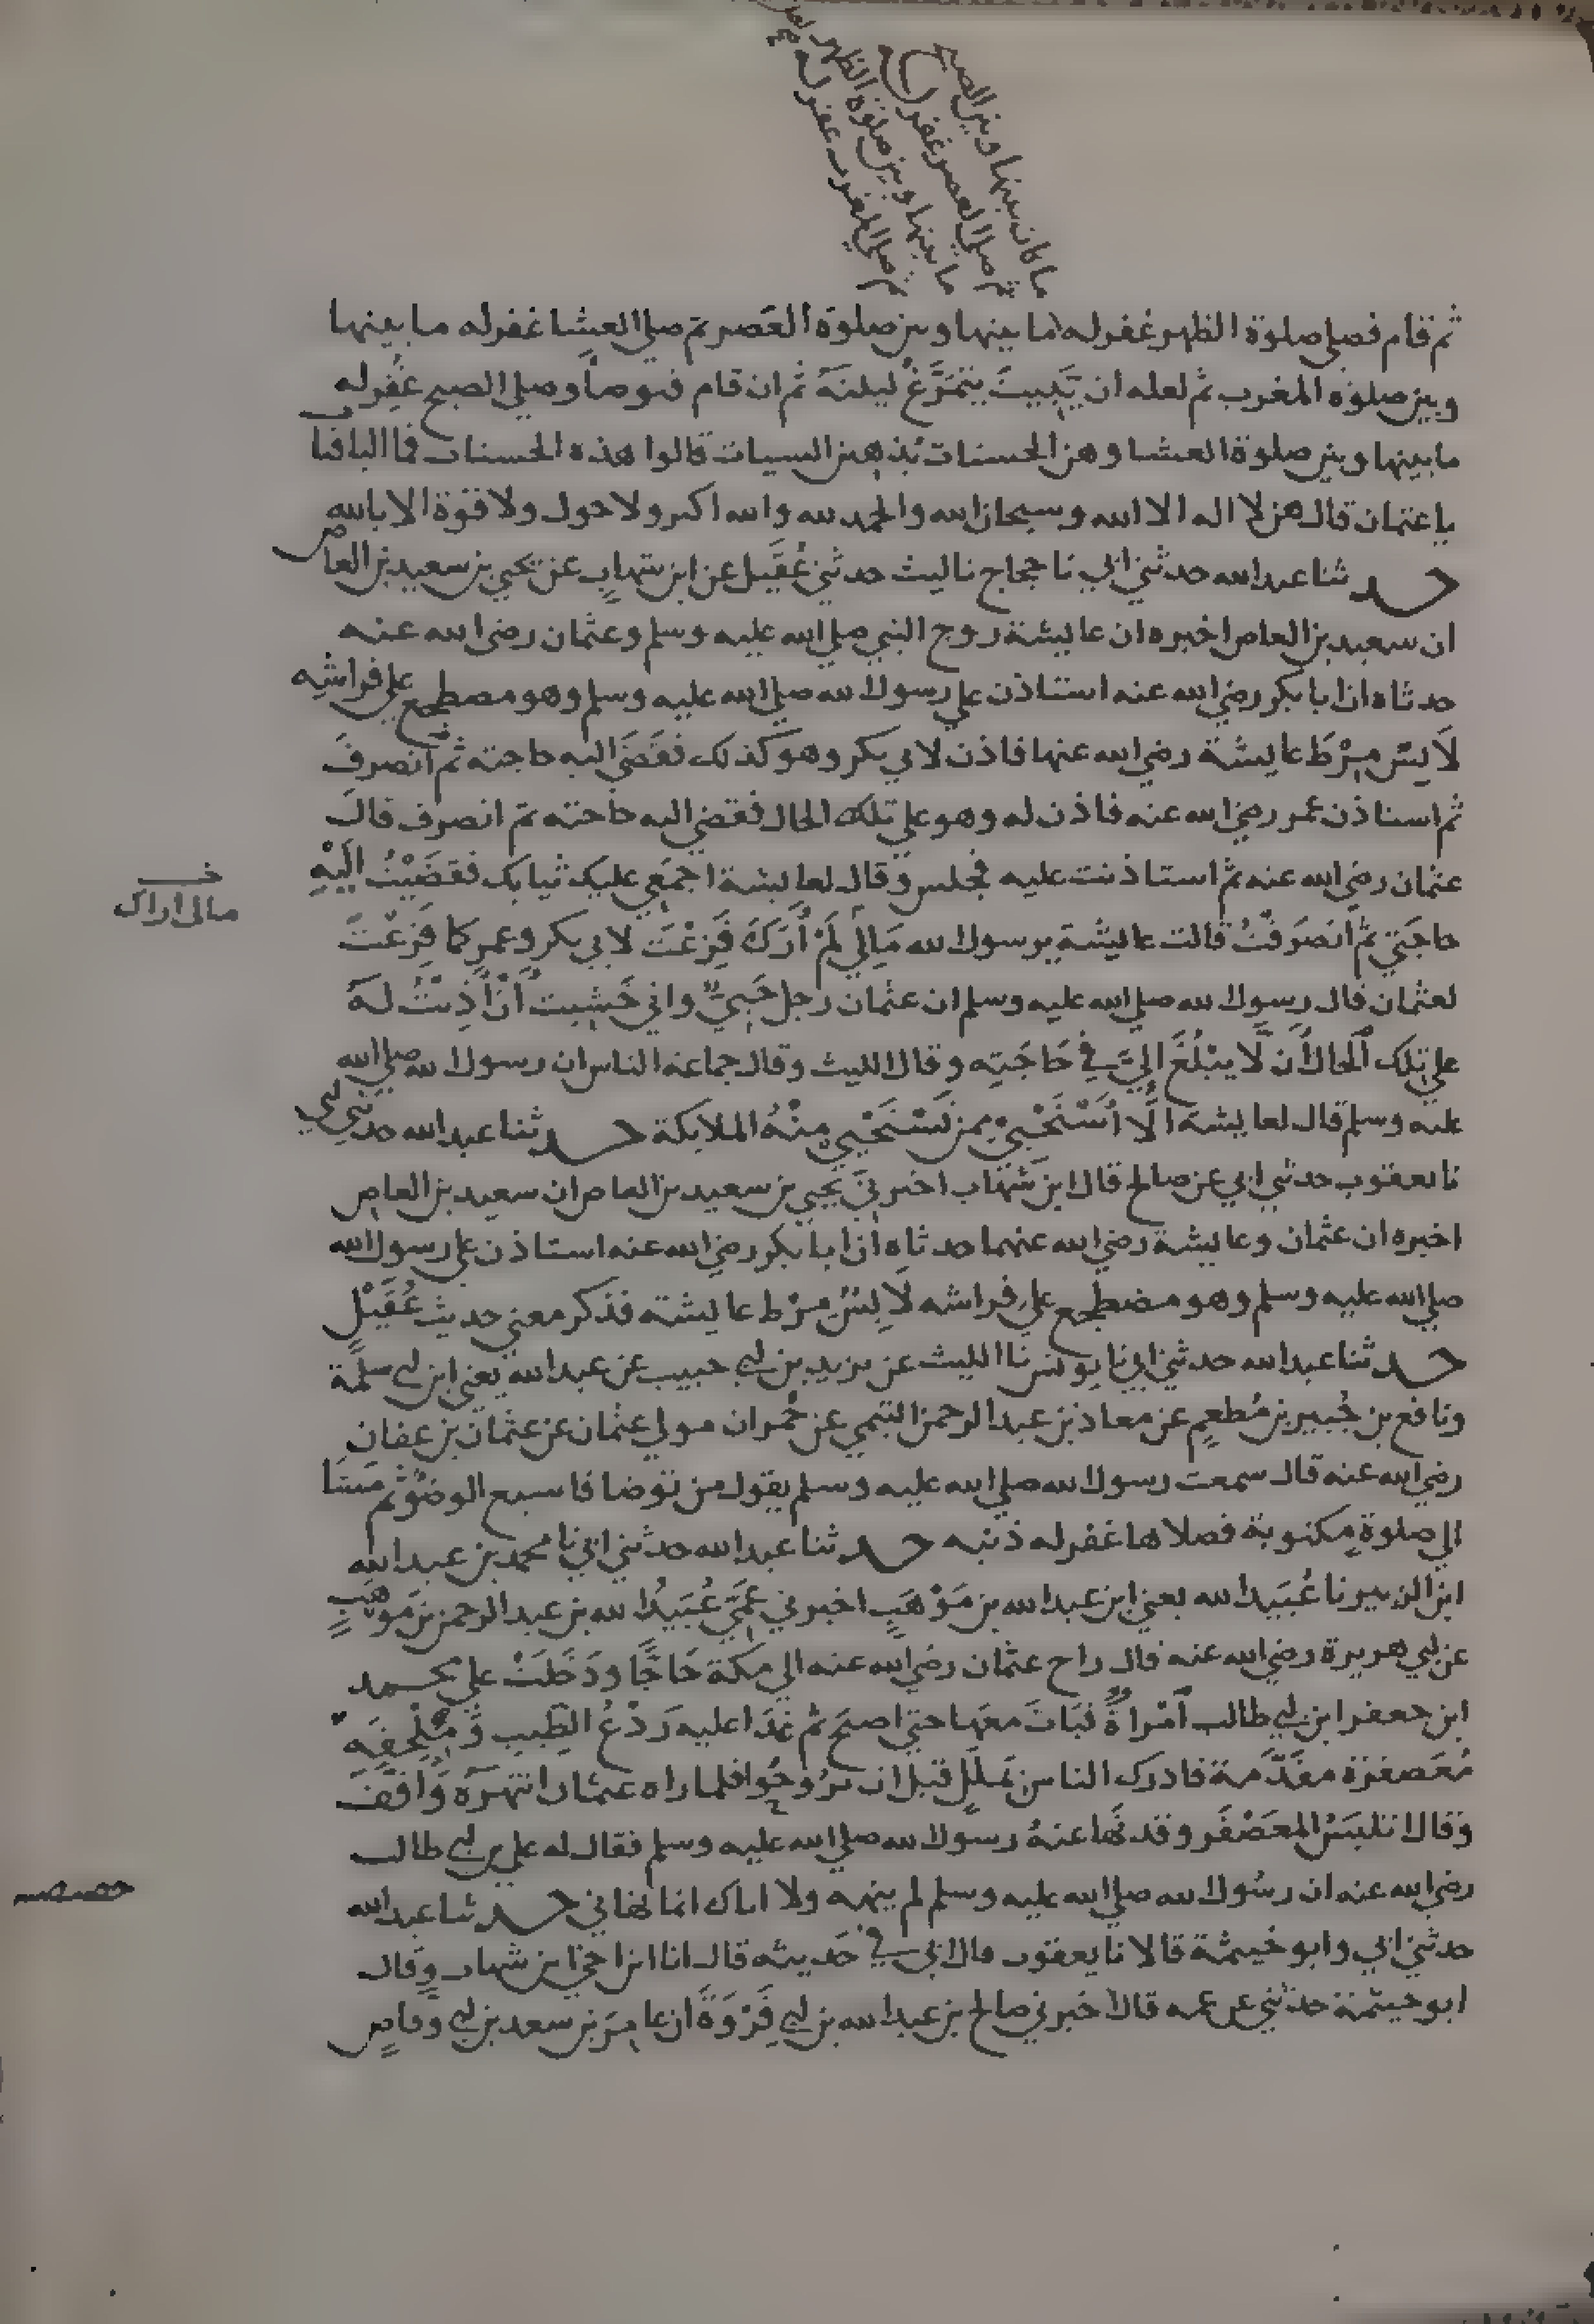 ما كان بينها وبين الصبح
ثم صلى العصر غفر له
ما بينها وبين صلوة الظهر
ثم صلى المغرب غفر له
ثم قام فصلى صلوة الظهر غفر له ما بينها وبين صلوة العصر ثم صلي العشا غفر له ما بينها
وبين صلوة المغرب ثم لعله ان يَبِيتَ يتمَرَّغُ ليلتهُ ثم ان قام فتوضأ وصلي الصبح غُفِر له
ما بينها وبين صلوة العشا وهن الحسنات يُذهبن السيات قالوا هذه الحسنات فما الباقيات
يا عثمان قال هن لا اله الا الله وسبحان الله والحمد لله والله اكبر ولا حول ولا قوة الا بالله
حدثنا عبد الله حدثني ابي نا حجاج نا ليث حدثني عُقَيل عن ابن شهابٍ عن يحيي بن سعيد بن العاص
ان سعيد بن العاص اخبره ان عايشة زوج النبي صلي الله عليه وسلم وعثمان رضي الله عنه
حدثاه ان ابا بكر رضي الله عنه استاذن علي رسول الله صلي الله عليه وسلم وهو مضطجع علي فراشِه
لَابِسٌ مِرْطَ عايشة رضي الله عنها فاذن لابي بكر وهو كذلك فقَضَي اليه حاجته ثم انصرفَ
ثم استاذن عمر رضي الله عنه فاذن له وهو علي تلك الحال فقضي اليه حاجته ثم انصرف قال
عثمان رضي الله عنه ثم استاذنت عليه فجلس وقال لعايشة اجمَعِي عليك ثيابك فقضَيْتُ الَيْهِ
خـ
مالى اراك
حاجَتِي ثم انصَرَفْتُ قالت عايشة يرسول الله مَالِي لَمْ أَرَكَ فَزِعْتَ لابي بكر وعمر كما فَزِعْتَ
لعثمان قال رسول الله صلي الله عليه وسلم ان عثمان رجل حَيِيٌّ واني خَشِيت أنْ أذِنْتُ لهُ
علي تلك الحال أن لَّا يبْلُغَ اليَّ في حَاجَتِه وقال الليث وقال جماعة الناس ان رسول الله صلي الله
عليه وسلم قال لعايشة الَا أَسْتَحْيِي ممن تَسْتَحْيِي مِنْهُ الملايكة حدثنا عبد الله حدثني ابي
نا يعقوب حدثني ابي عن صالح قال ابن شهَاب اخبرنِي يحيي بن سعيد بن العاص ان سعيد بن العاص
اخبره ان عثمان وعايشة رضي الله عنهما حدثاه أن ابا بكر رضي الله عنه استاذن علي رسول الله
صلي الله عليه وسلم وهو مضطجع علي فراشه لَابِسٌ مِرْط عايشة فذكر معني حديث عُقَيْلٍ
حدثنا عبد الله حدثني ابي نا يونس نا الليث عن يزيد بن ابي حبيب عن عبد الله يعني ابن ابي سلمة
ونافع بن جُبير بن مُطعِم عن معاذ بن عبد الرحمن التيمي عن حُمران مولي عثمان عن عثمان بن عفان
رضي الله عنه قال سمعت رسول الله صلي الله عليه وسلم يقول من توضا فاسبع الوضُوْ ثم مَشَا
الي صلوة مكتوبة فصلاها غفر له ذنبه حدثنا عبد الله حدثني ابي نا محمد بن عبد الله
ابن الزبير نا عُبَيد الله يعني ابن عبد الله بن مَوْهَبٍ اخبرني عَمِّي عُبَيدُ الله بن عبد الرحمن بن مَوهَبٍ
عن ابي هريرة رضي الله عنه قال راح عثمان رضي الله عنه الي مكة حَاجًّا ودَخَلَتْ علي محمد
ابن جعفر ابن ابي طالب امْرأةٌ فبَاتَ معَها حتي اصبحَ ثم غدَا عليه رَدْعُ الطِّيبِ وَمِلْحفَةٌ
مُعَصفرة مفَدَّمة فادرك الناس بمَلَلٍ قبل ان يرُوحُوا فلما راه عثمان انتهَرَه وَافَّفَ
وقال اتلبَسُ المعَصْفَر وقد نهَا عنهُ رسول الله صلي الله عليه وسلم فقال له علي بن ابي طالب
رضي الله عنه ان رسُول الله صلي الله عليه وسلم لم ينهه ولا اياك انما نهاني حدثنا عبد الله
حدثني ابي وابو خيثمة قالا نا يعقوب قال ابي في حَديثه قال انا ابن اخي ابن شهاب وقال
ابو خيثمة حدثني عن عمه قال اخبرني صالح بن عبد الله بن ابي فَرْوَةَ ان عامِرَ بن سعد بن ابي وقاصٍ